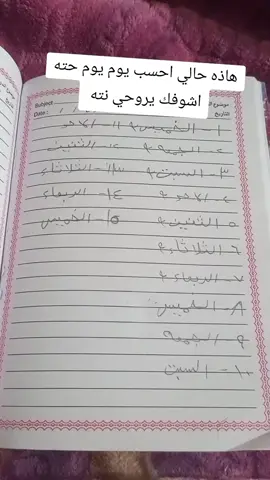 هاذه حالي احسب يوم يوم حته
اشوفك يروحي نته
Subject
موضوع
Date :
التاريخ
١- الخميس ١١- الاحد
٢- الجمعه ١٢- الثنين
٣- السبت ١٣- الثلاثاء
٤- الاحد ١٤- الربعاء
٥- الثنين ١٥- الخميس
٦- الثلاثاء
٧- الربعاء
٨- الخميس
٩- الجمعه
١٠- السبت